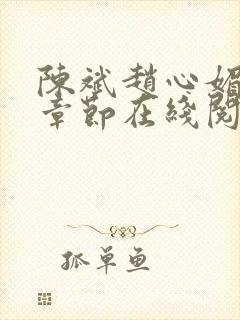 陳斌趙心媚
章節在綫閱
孤單鱼